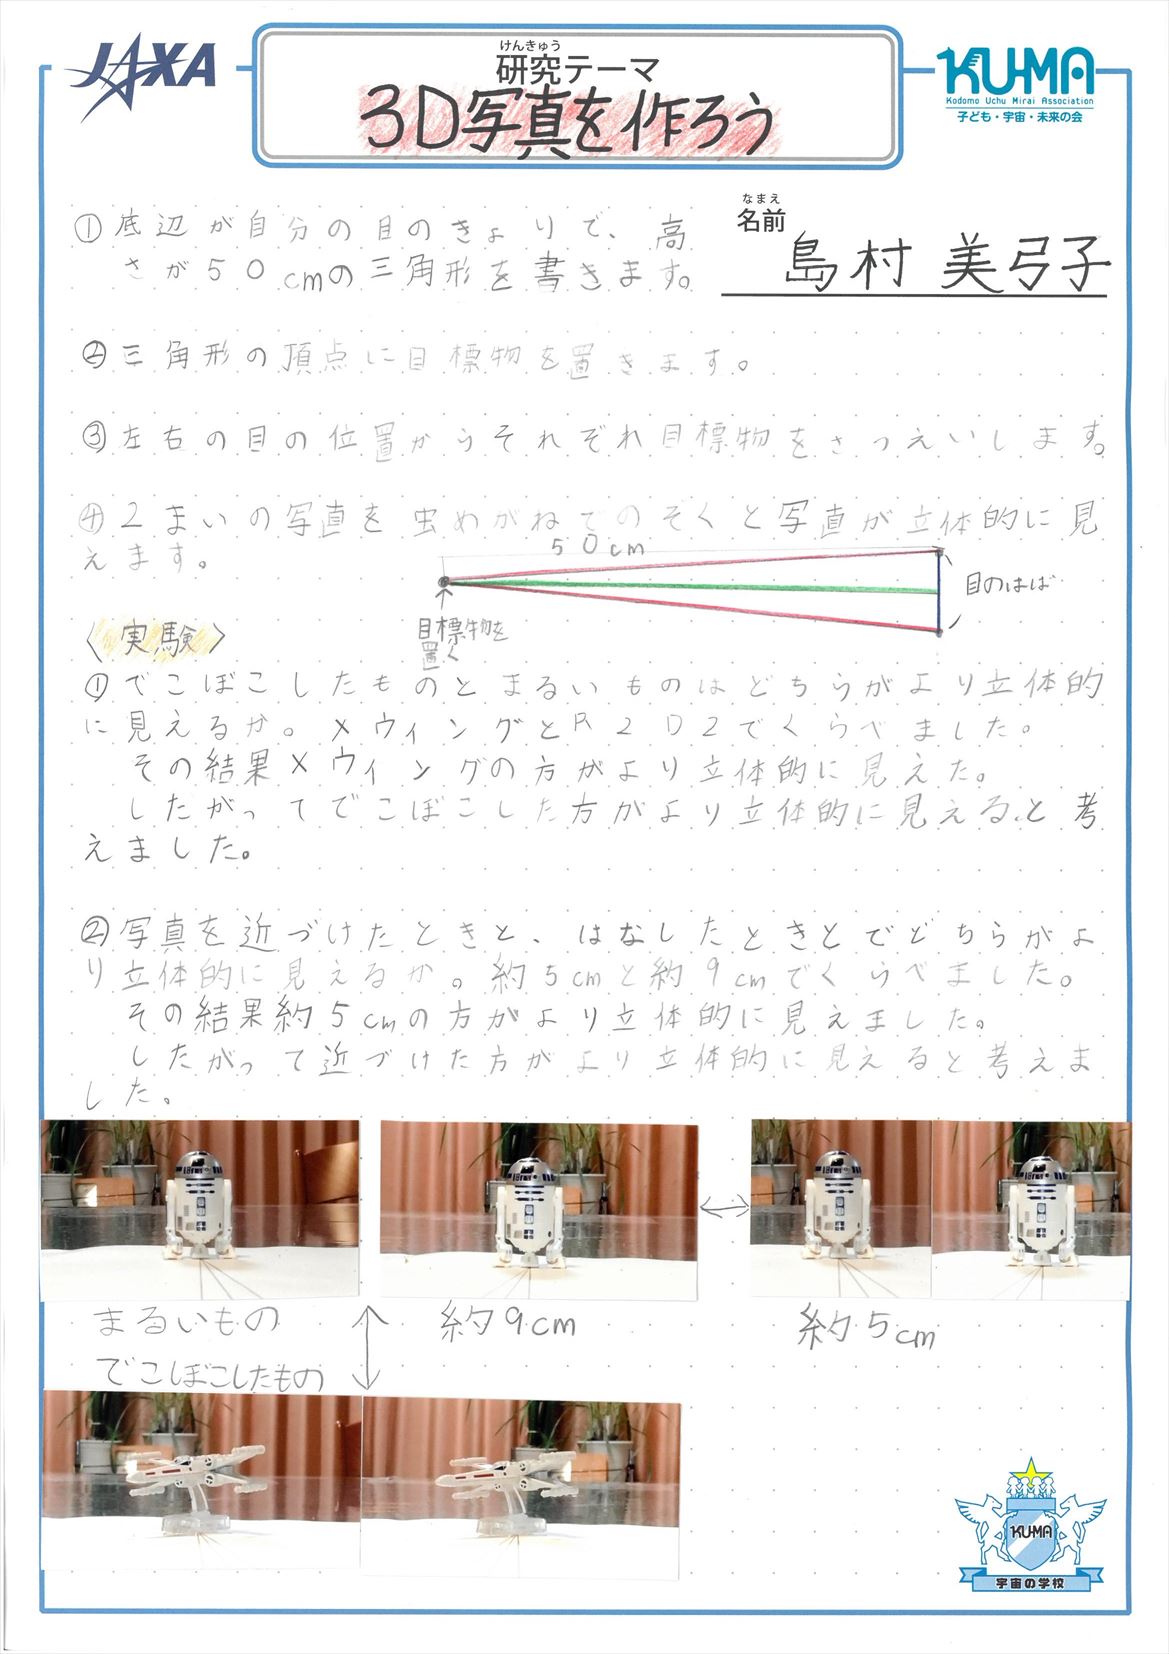 JAXA
けんきゅう
研究テーマ
3D写真を作ろう
KU-MA
Kodomo Uchu Mirai Association
子ども・宇宙・未来の会
なまえ
名前
島村 美弓子
①底辺が自分の目のきょりで、高
さが50cmの三角形を書きます。
②三角形の頂点に目標物を置きます。
③左右の目の位置からそれぞれ目標物をさつえいします。
④2まいの写真を虫めがねでのぞくと写真が立体的に見
えます。
50cm
目のはば
目標物を
置く
〈実験〉
①でこぼこしたものとまるいものはどちらがより立体的
に見えるか。XウィングとR2D2でくらべました。
その結果Xウィングの方がより立体的に見えた。
したがってでこぼこした方がより立体的に見えると考
えました。
②写真を近づけたときと、はなしたときとでどちらがよ
り立体的に見えるか。約5cmと約9cmでくらべました。
その結果約5cmの方がより立体的に見えました。
したがって近づけた方がより立体的に見えると考えま
した。
まるいもの
約9cm
約5cm
でこぼこしたもの
KU-MA
宇宙の学校